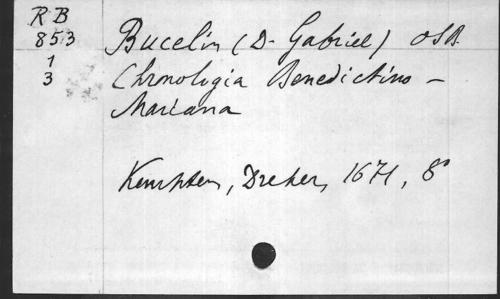 RB
853
1
3
Bucelin (D. Gabriel) OSB.
Chronologia Benedictino-
Mariana
Kempten, Dreher, 1671, 8°